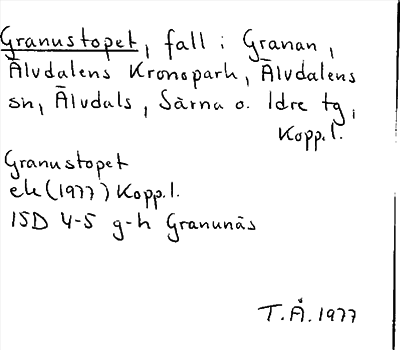 Granustopet, fall i Granan,
Älvdalens Kronopark, Älvdalens
sn, Älvdals, Särna o. Idre tg,
Kopp.l.
Granustopet
ek (1977) Kopp.l.
15D 4-5 g-h Granunäs
T.Å. 1977